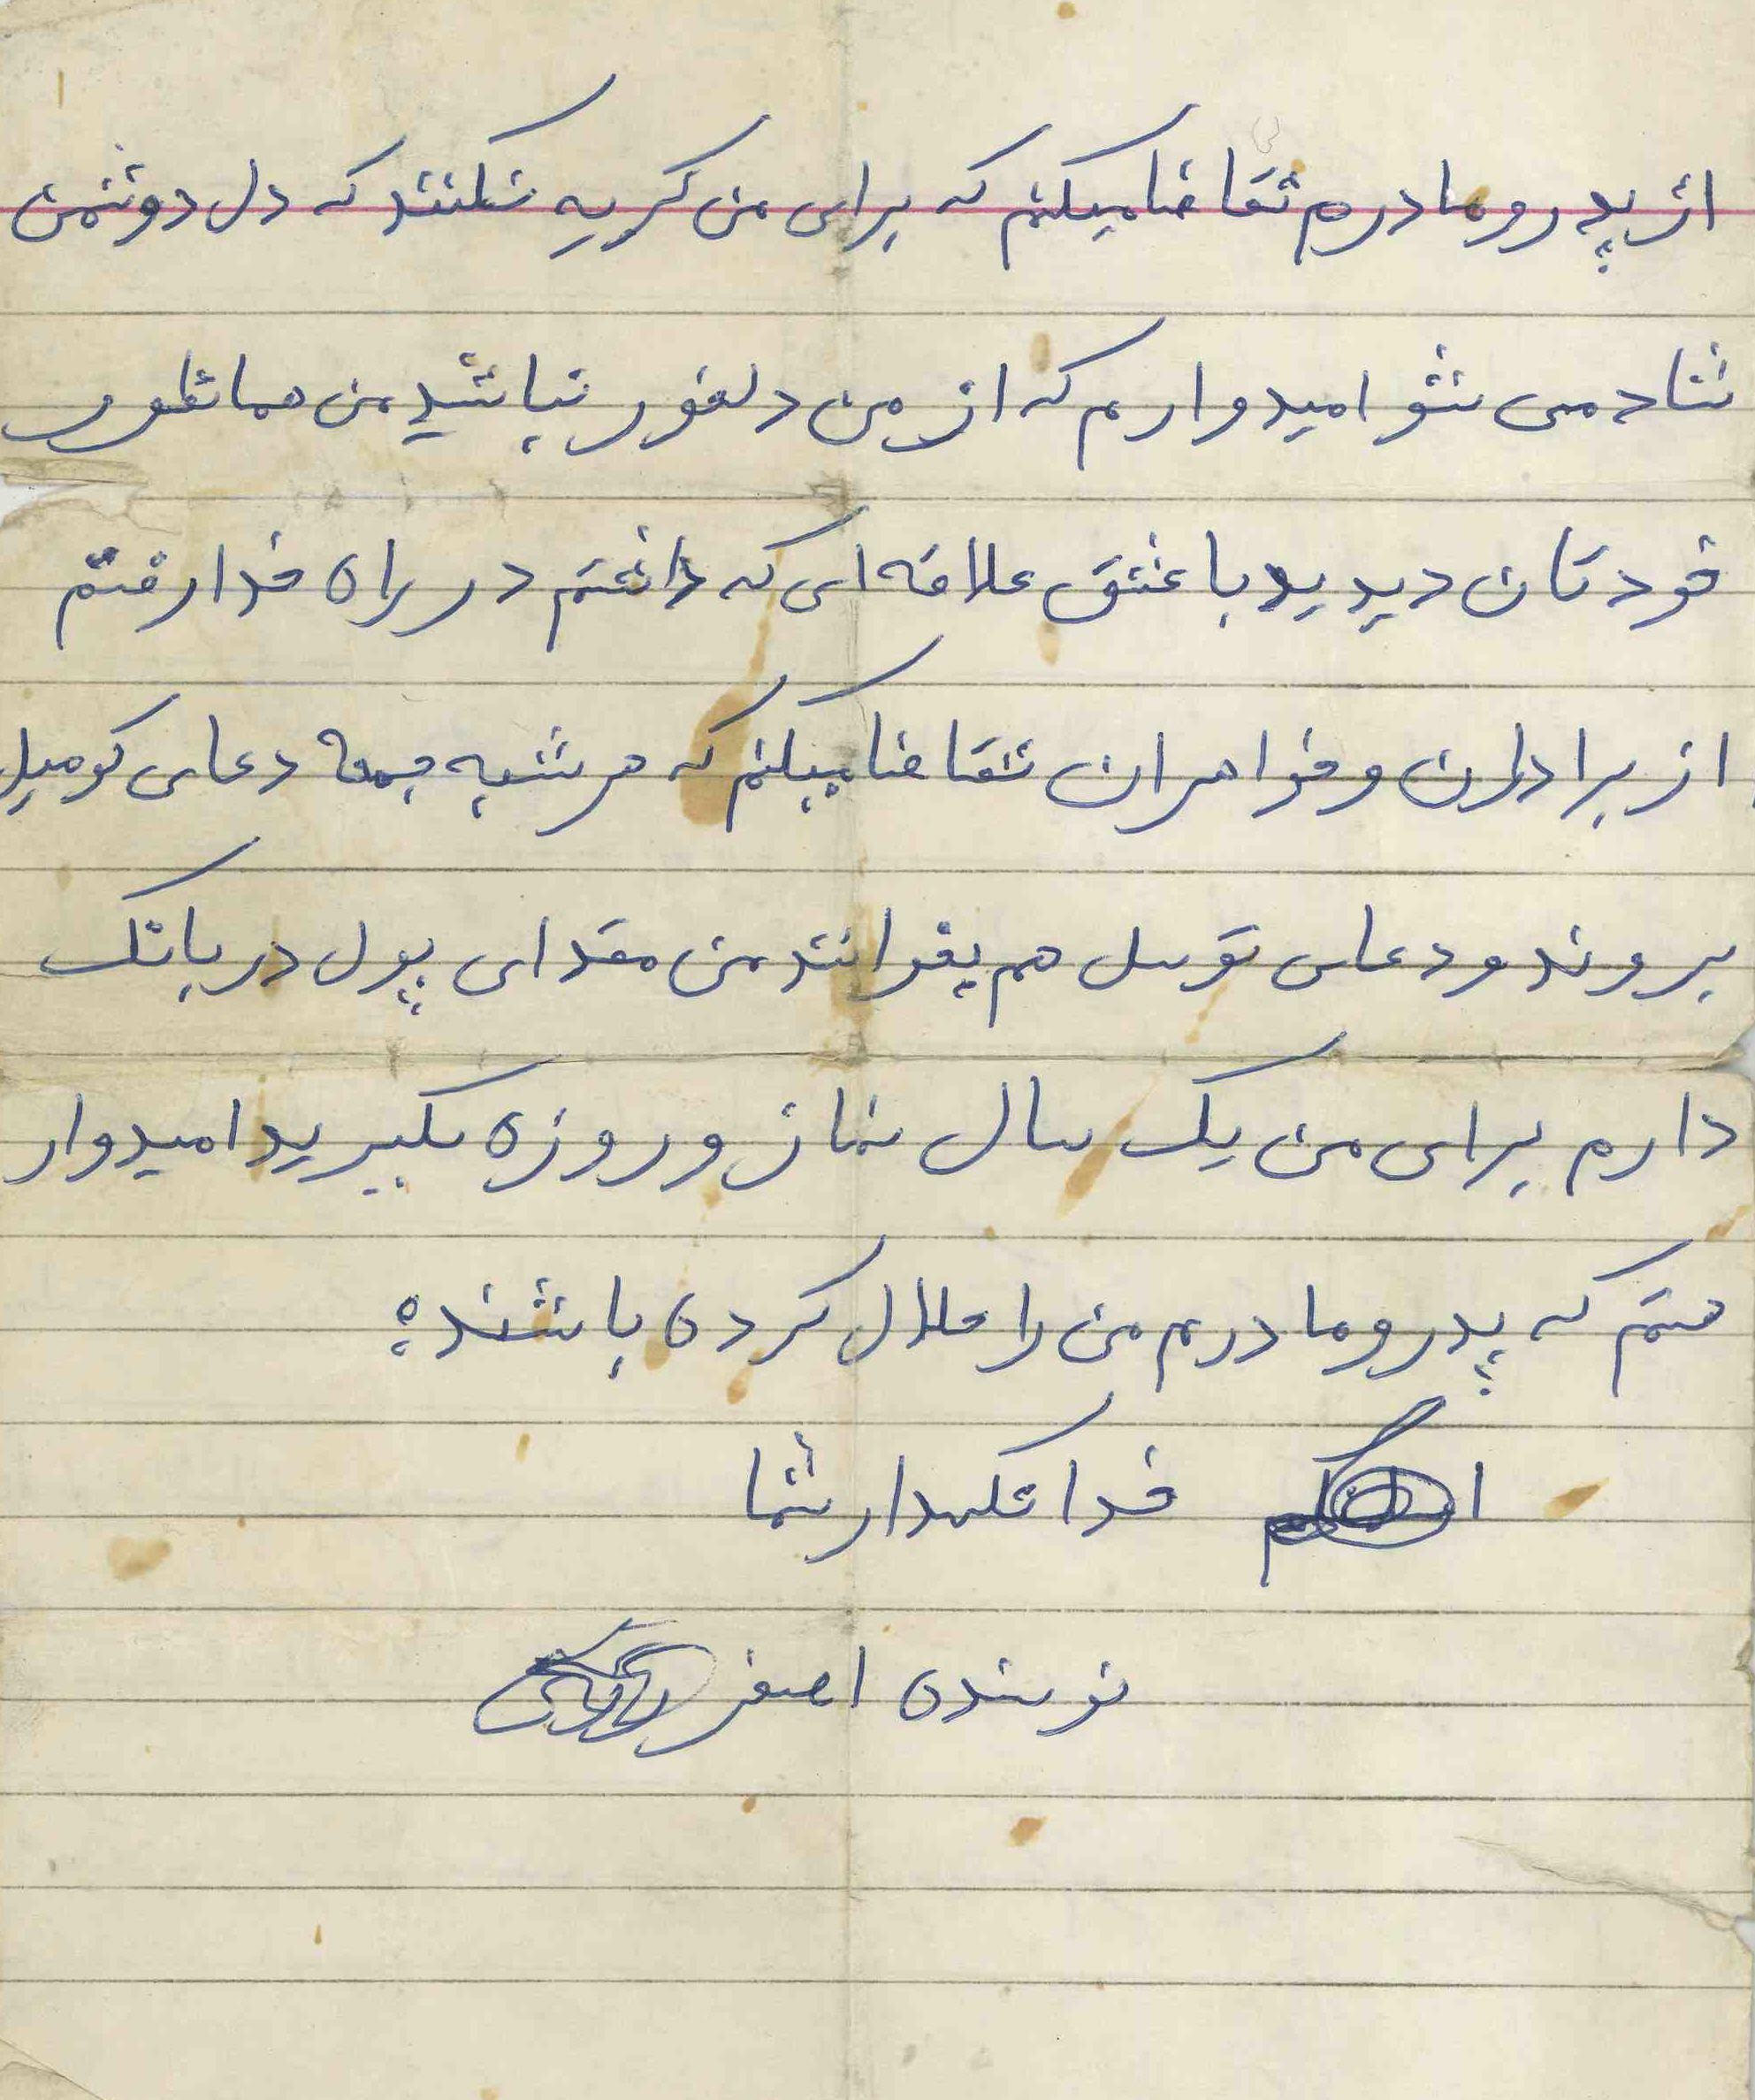 از پدر و مادرم تقاضا میکنم که برای من گریه نکنند که دل دوشمن
شاد می شو امیدوارم که از من دلخور نباشید من همانطور
خودتان دیدید با عشق علاقه ای که داشتم در راه خدا رفتم
از برادارن و خواهران تقاضا میکنم که هر شبه جمعه دعای کومیل
بروند و دعای توسل هم بخوانند من مقدای پول در بانک
دارم برای من یک سال نماز و روزه بگیرید امیدوار
هستم که پدر و مادرم من را حلال کرده باشنده
خدا نگهدار شما
نویسنده اصغر